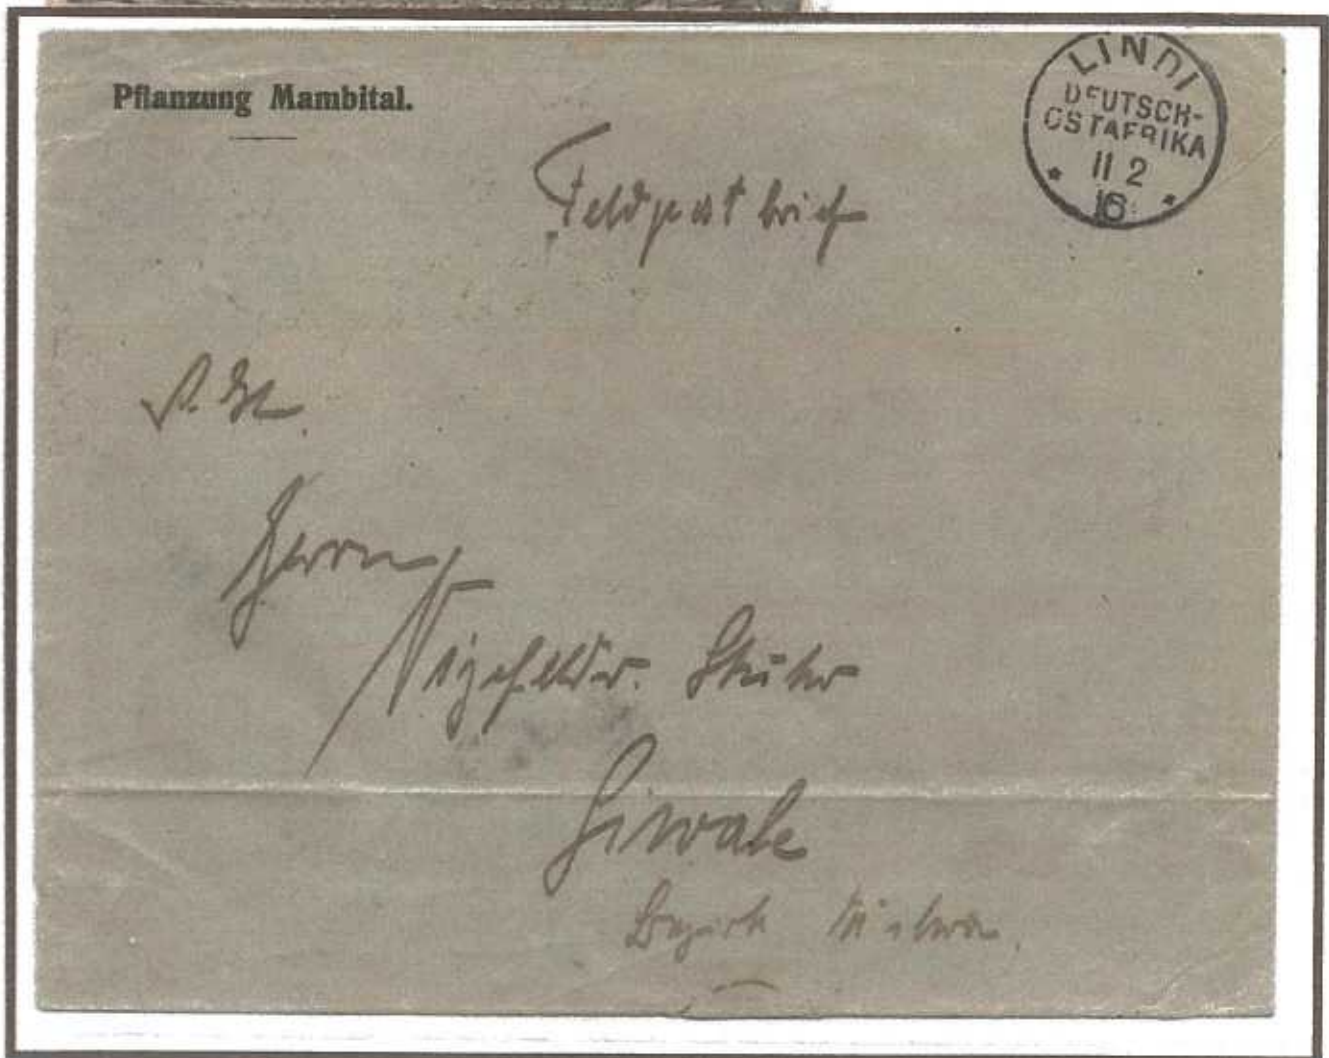 Pflanzung Mambital.
LINDI
DEUTSCH-
OSTAFRIKA
11 2
16
Feldpostbrief
Herrn
Vizefeldw.
Liwale
Bezirk Kilwa.